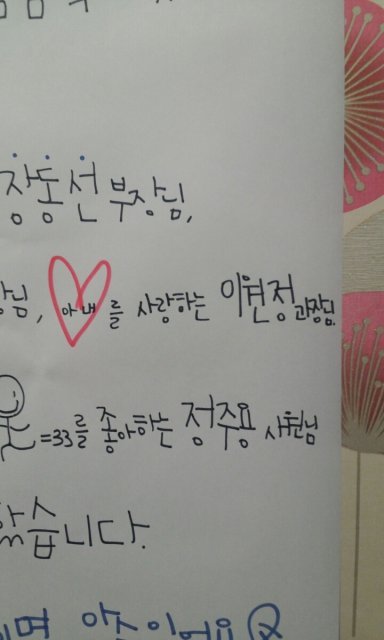 장동선 부장님,
님, 아내를 사랑하는 이원정 과장님
=33를 좋아하는 정주용 사원님
습니다.
며